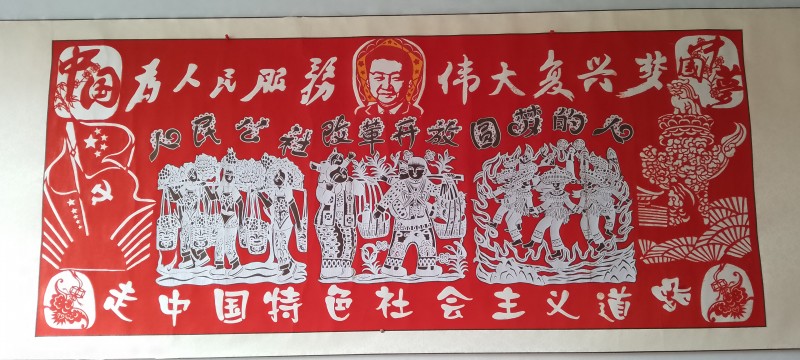 中国 为人民服務 伟大复兴梦 国梦
人民公社改革开放圆梦的人
走中国特色社会主义道路